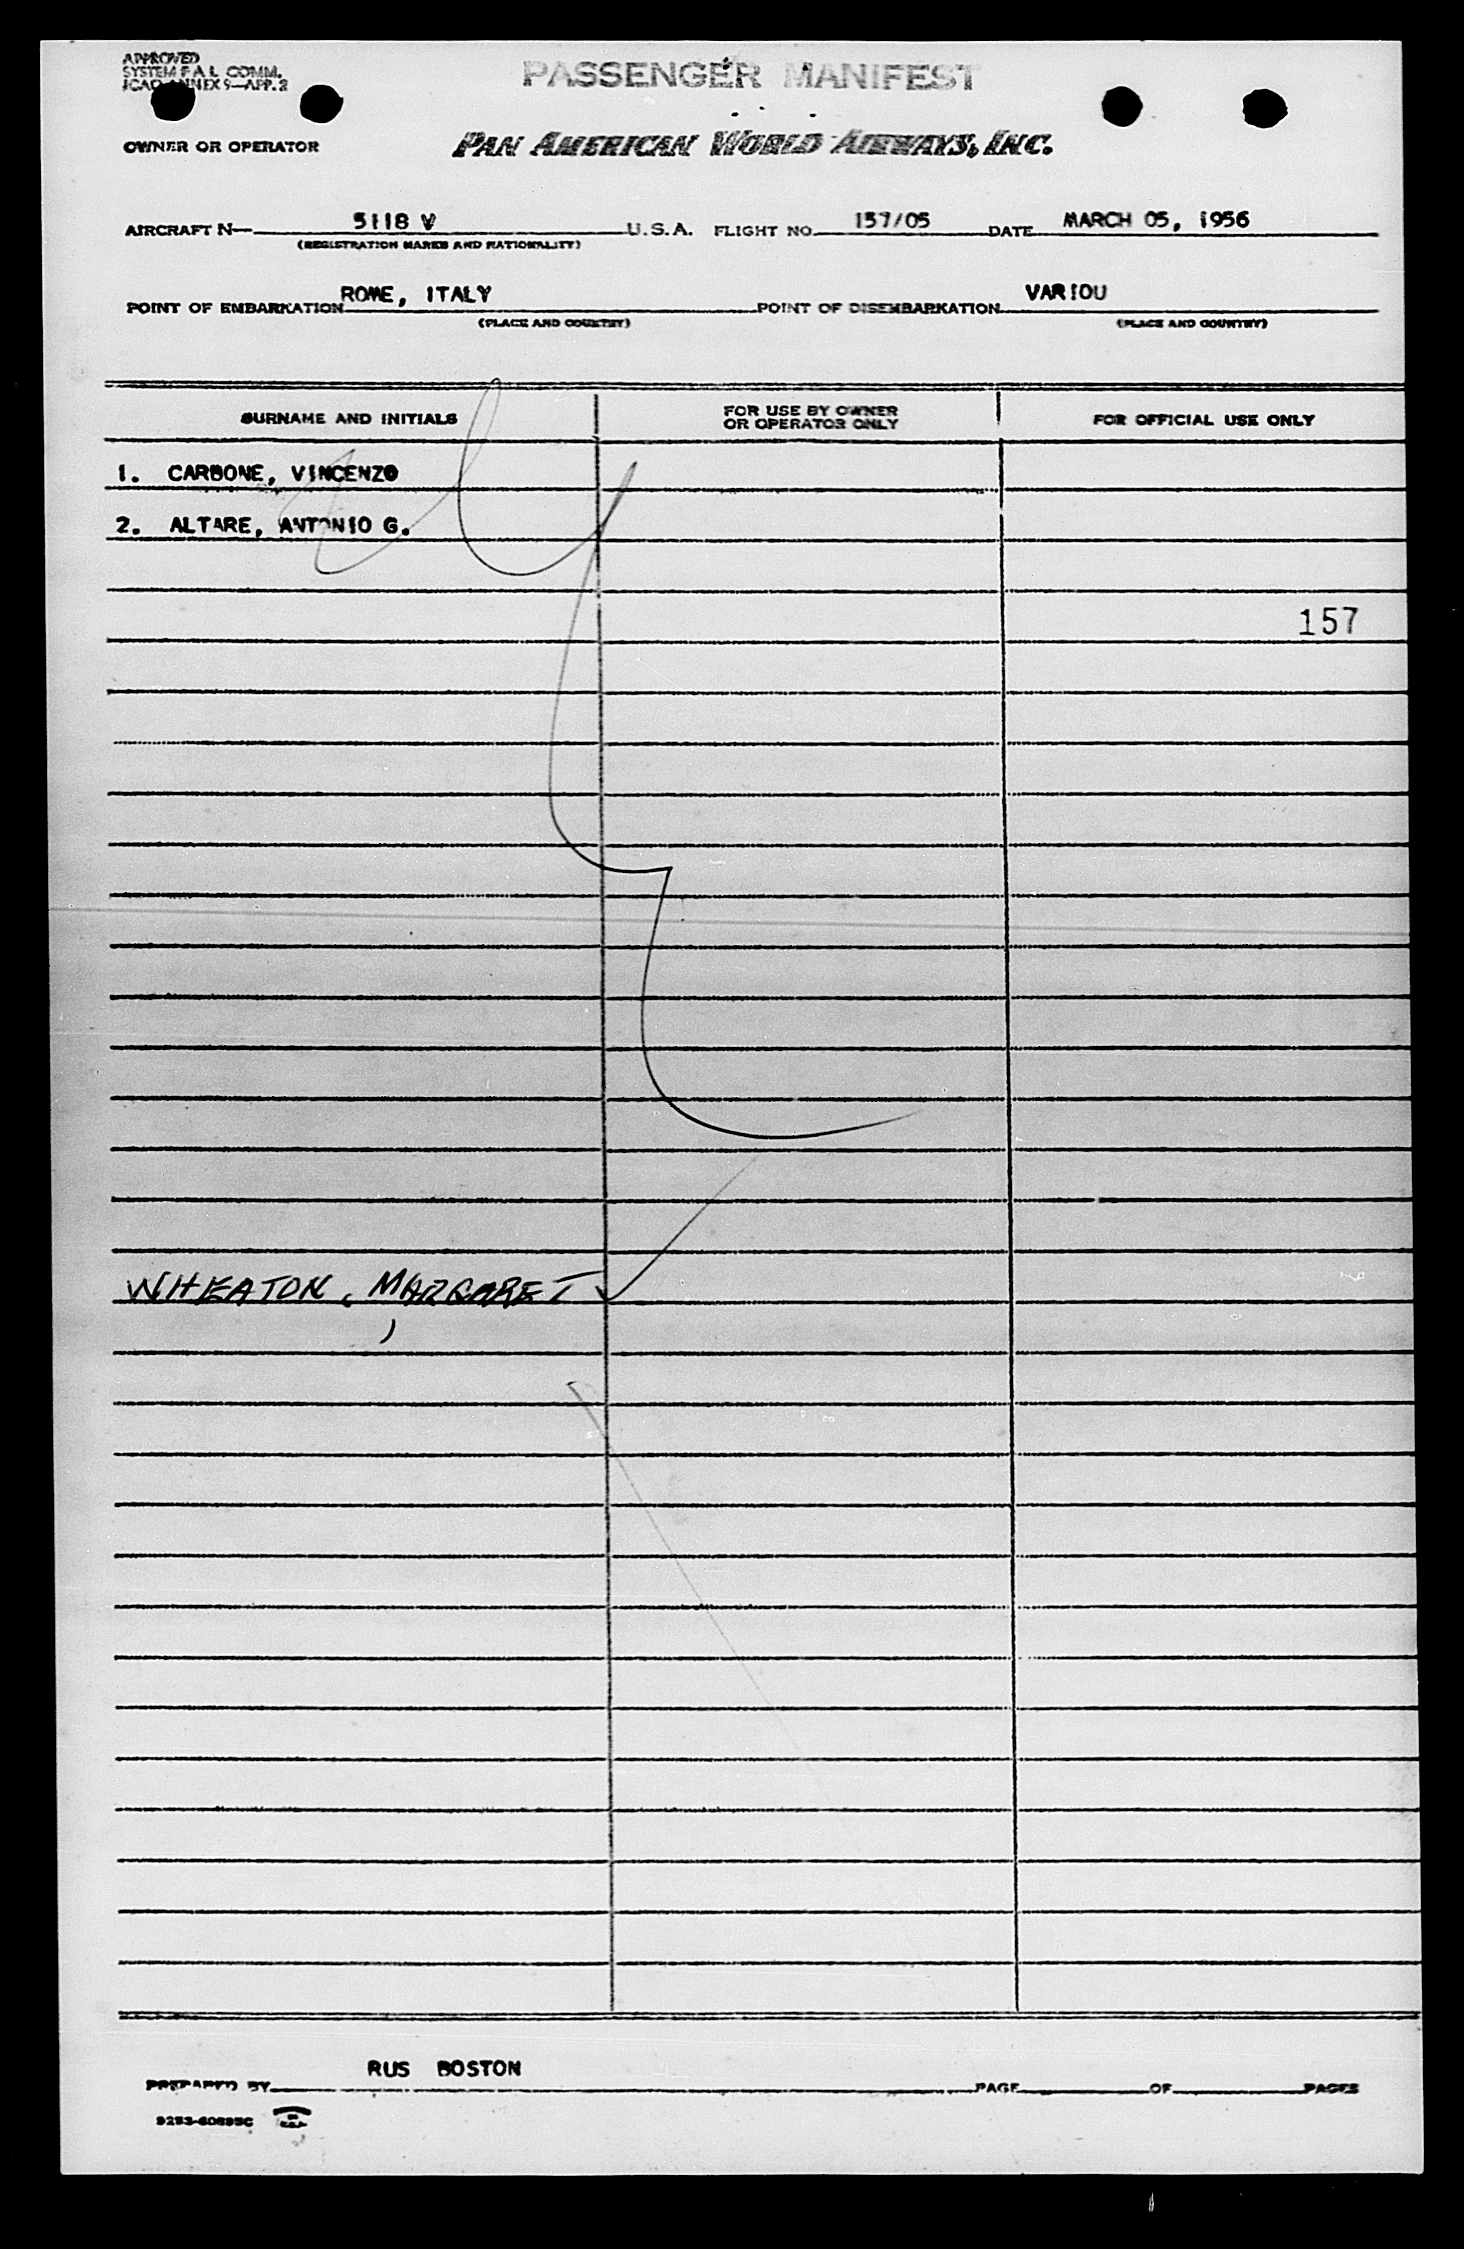 APPROVED
SYSTEM F.A.L. COMM.
ICAO ANNEX 9—APP. 2
PASSENGER MANIFEST
OWNER OR OPERATOR
PAN AMERICAN WORLD AIRWAYS, INC.
AIRCRAFT N— 5118 V U.S.A. FLIGHT NO. 157/05 DATE MARCH 05, 1956
(REGISTRATION MARKS AND NATIONALITY)
POINT OF EMBARKATION ROME, ITALY POINT OF DISEMBARKATION VARIOU
(PLACE AND COUNTRY) (PLACE AND COUNTRY)
SURNAME AND INITIALS FOR USE BY OWNER OR OPERATOR ONLY FOR OFFICIAL USE ONLY
1. CARBONE, VINCENZO
2. ALTARE, ANTONIO G.
157
WHEATON, MARGARET
PREPARED BY RUS BOSTON PAGE OF PAGES